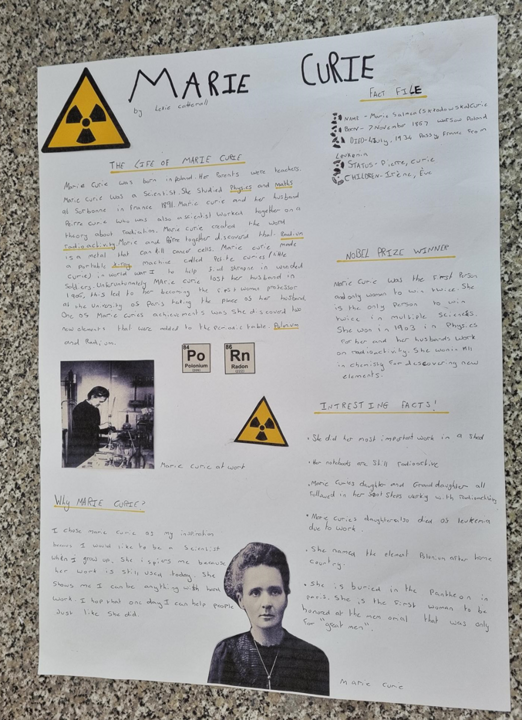 MARIE CURIE
by
FACT FILE
NAME - Marie Salomea Skłodowska Curie
Born - 7 November 1867 Warsaw Poland
DIED - 4 July, 1934 Passy France From
Leukemia
STATUS - Pierre, Curie
CHILDREN - Irène, Eve
THE LIFE OF MARIE CURIE
Marie Curie was born in Poland. Her Parents were teachers.
Marie Curie was a Scientist. She studied Physics and maths
at Sorbonne in France 1891. Marie Curie and her husband
Pierre Curie who was also a scientist worked together on a
theory about radiation. Marie Curie created the word
radioactivity Marie and Pierre together discovered that Radium
is a metal that can kill cancer cells. Marie Curie made
a portable Xray machine called Petite Curies (little
Curies) in world war I to help find shrapnel in wounded
Soldiers. Unfortunately Marie Curie lost her husband in
1906, this led to her becoming the first woman professor
at the university of Paris taking the place of her husband.
One of Marie Curies achievements was she discovered two
new elements that were added to the periodic table. Polonium
and Radium.
84
Po
Polonium
86
Rn
Radon
NOBEL PRIZE WINNER
Marie Curie was the First Person
and only woman to win twice. She
is the only person to win
twice in multiple Sciences.
She won in 1903 in Physics
for her and her husbands work
on radioactivity. She won
in chemistry For discovering new
elements.
INTRESTING FACTS!
• She did her most important work in a shed
• Her notebooks are still radioactive
• Marie Curies daughter and Granddaughter all
followed in her foot steps working with radioactivity
• Marie Curie's daughter also died of leukemia
due to work.
• She named the element Polonium after home
country.
• She is buried in the Pantheon in
paris. She is the first woman to be
honored at the memorial that was only
for "great men".
Marie curie at work
WHY MARIE CURIE?
I chose marie curie as my inspiration
because I would like to be a Scientist
when I grow up. She inspires me because
her work is still used today. She
shows me I can be anything with hard
work. I hope that one day I can help people
Just like She did.
Marie Curie